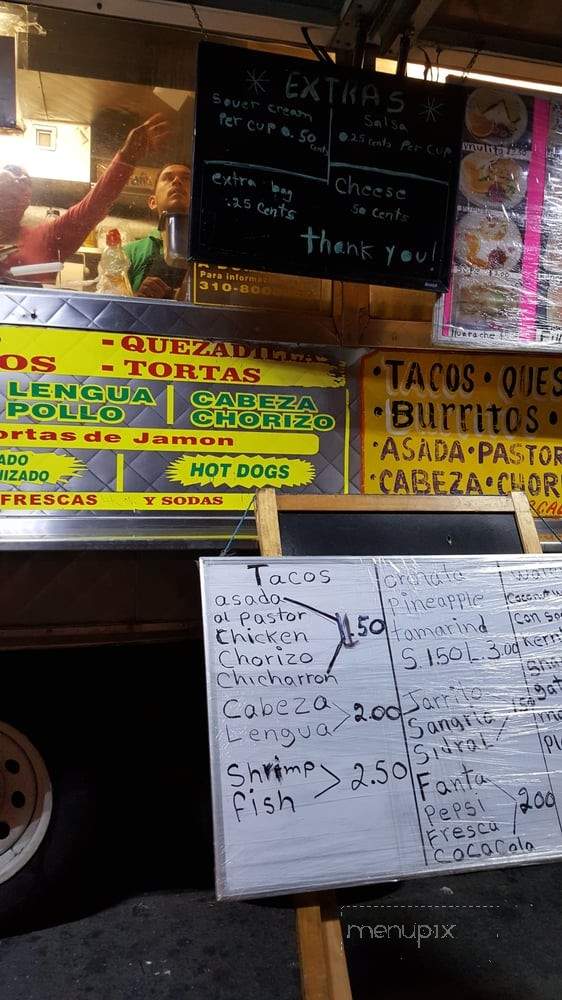 EXTRAS
Souer cream
Per cup 0.50
cents
Salsa
0.25 cents Per cup
extra bag
.25 cents
Cheese
50 cents
thank you!
Para informa
310-800
mulita
Huarache
- QUEZADILLA
OS - TORTAS
LENGUA
POLLO
CABEZA
CHORIZO
ortas de Jamon
ADO
IZADO
HOT DOGS
FRESCAS Y SODAS
• TACOS • QUES
• BURRITOS •
• ASADA • PASTOR
• CABEZA • CHOR
Tacos
asada
al pastor
Chicken
Chorizo
Chicharron
1.50
Cabeza
Lengua
2.00
Shrimp
fish
2.50
orchata
Pineapple
tamarind
S. 1.50 L. 3.00
Jarrito
Sangria
Sidral
Fanta
Pepsi
Fresca
CocaCola
200
Coconut w
can so
kern
gat
menupix